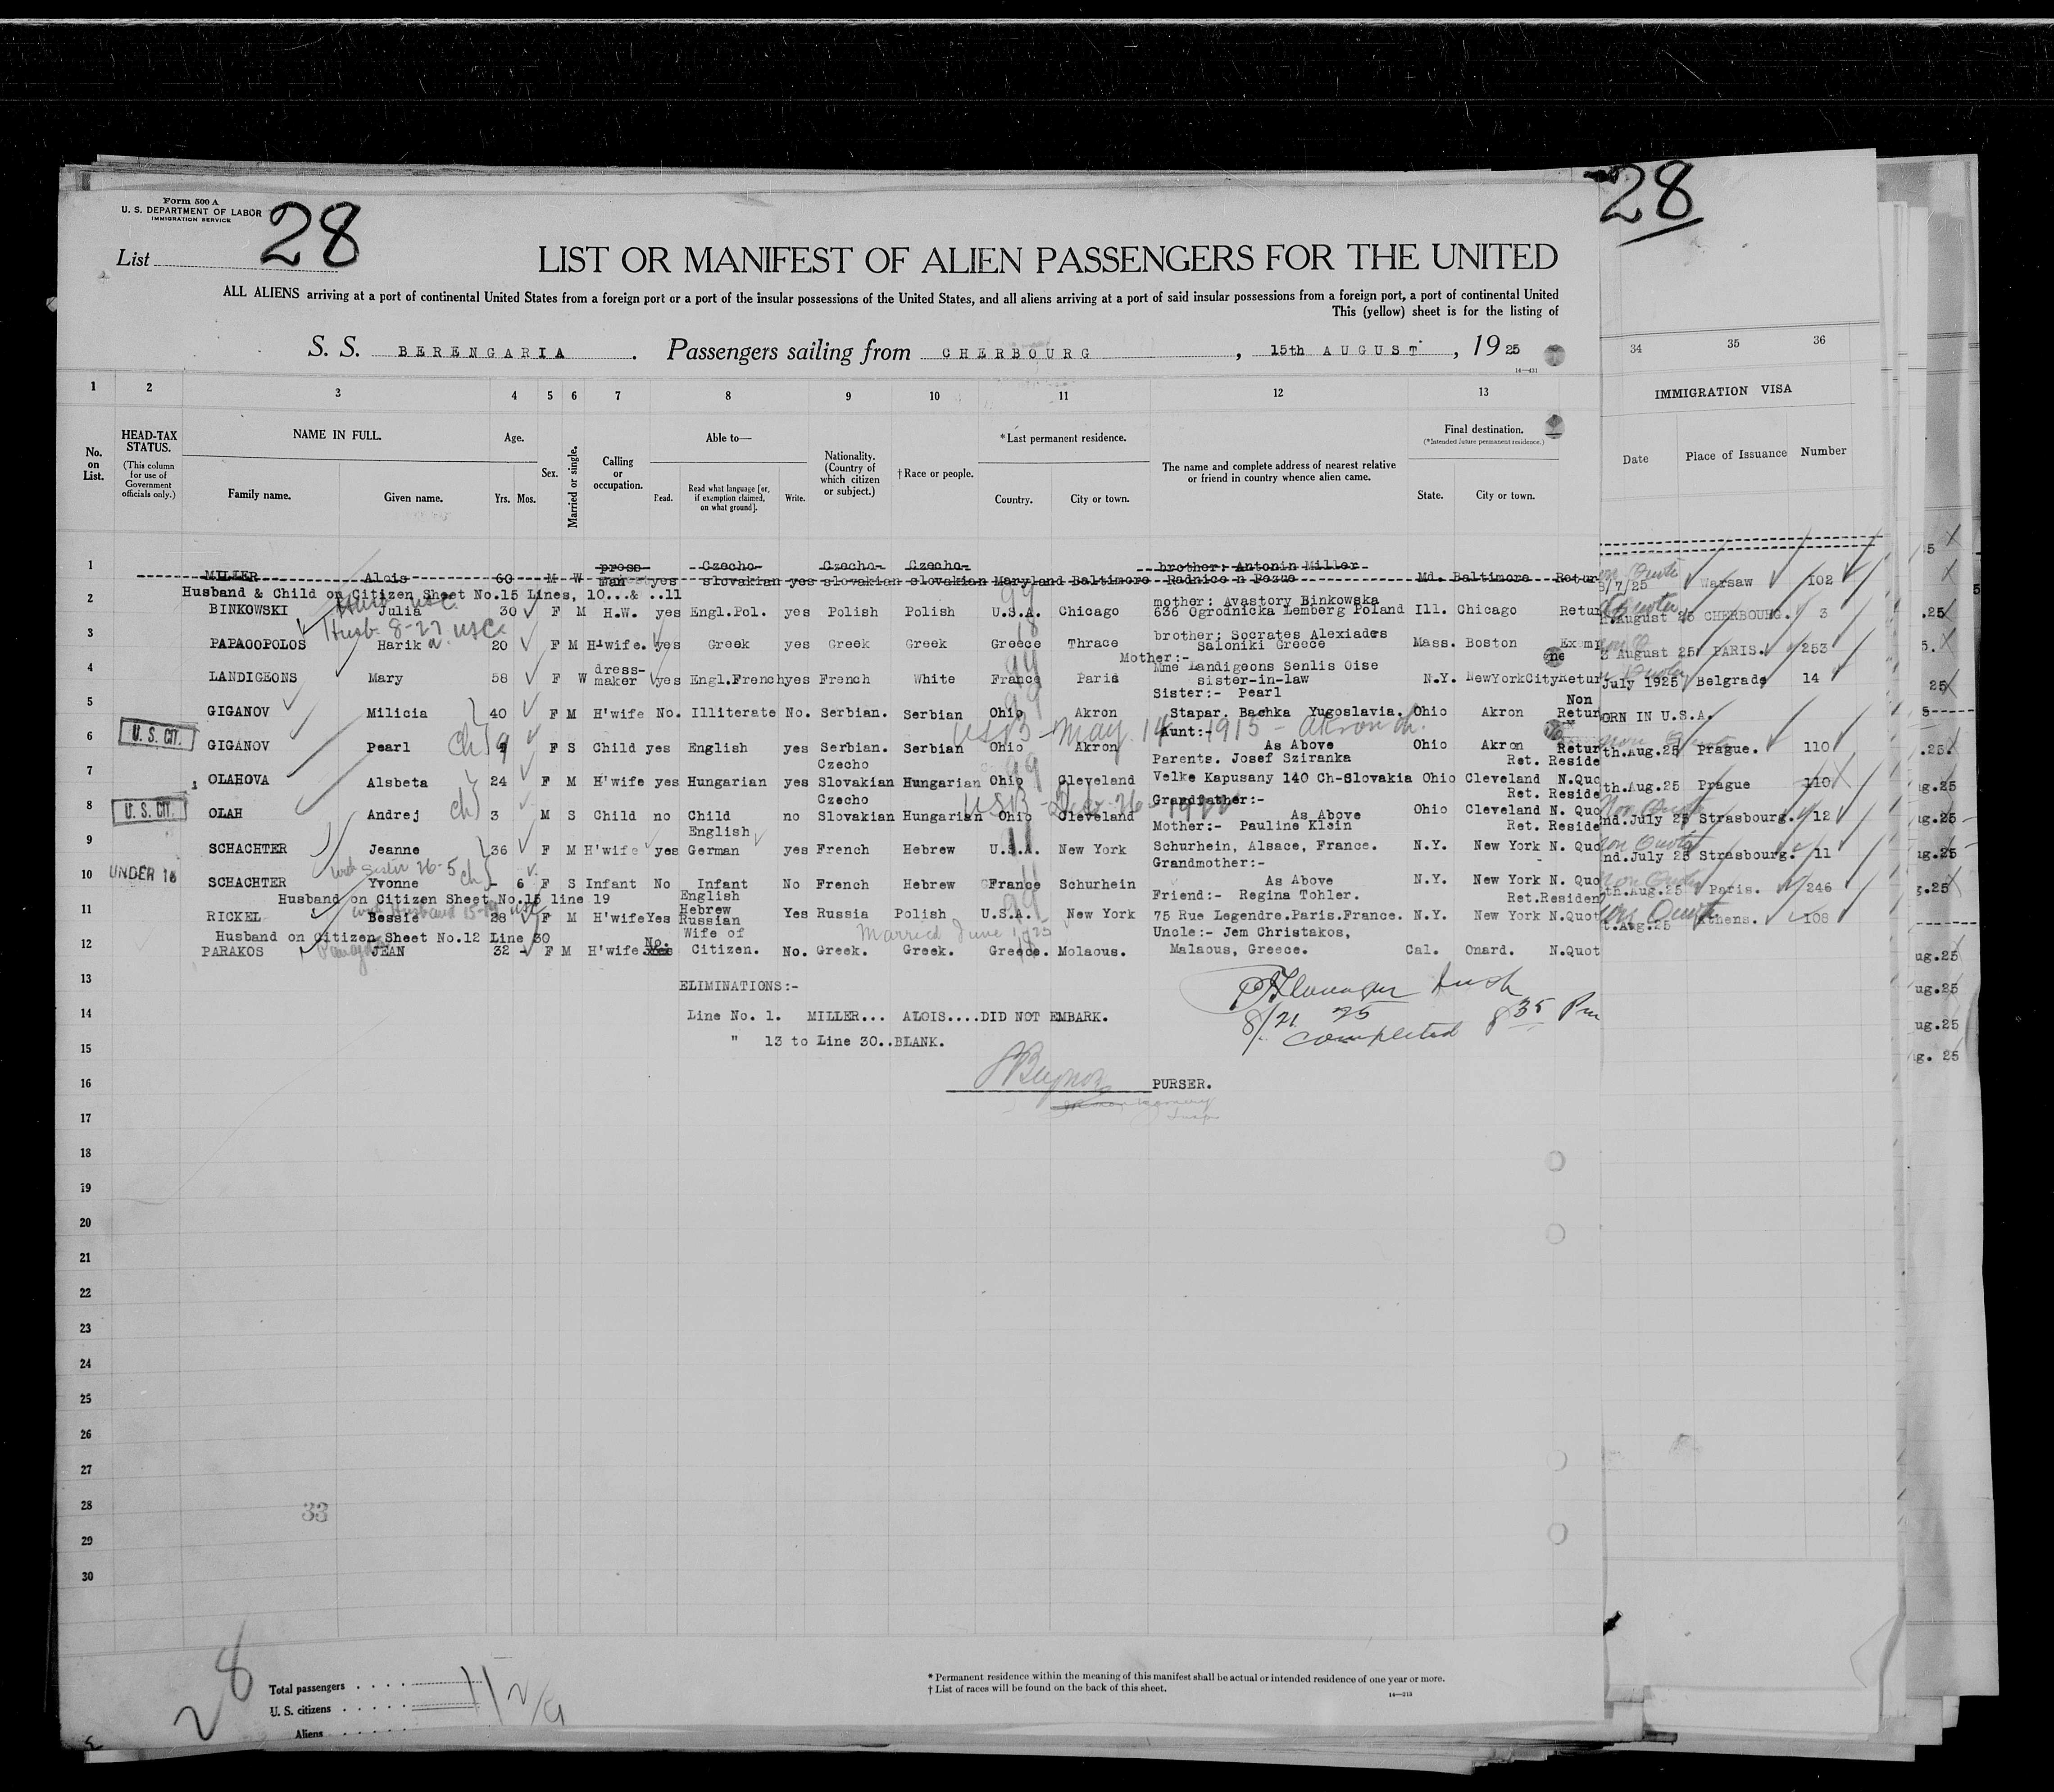 Form 500 A
U. S. DEPARTMENT OF LABOR
IMMIGRATION SERVICE
28
28
List
LIST OR MANIFEST OF ALIEN PASSENGERS FOR THE UNITED
ALL ALIENS arriving at a port of continental United States from a foreign port or a port of the insular possessions of the United States, and all aliens arriving at a port of said insular possessions from a foreign port, a port of continental United
This (yellow) sheet is for the listing of
S. S. BERENGARIA . Passengers sailing from CHERBOURG , 15th AUGUST , 19 25
14—431
1 2 3 4 5 6 7 8 9 10 11 12 13 34 35 36
No. on List.
HEAD-TAX STATUS. (This column for use of Government officials only.)
NAME IN FULL. Family name. Given name.
Age. Yrs. Mos.
Sex.
Married or single.
Calling or occupation.
Able to— Read. Read what language [or, if exemption claimed, on what ground]. Write.
Nationality. (Country of which citizen or subject.)
†Race or people.
*Last permanent residence. Country. City or town.
The name and complete address of nearest relative or friend in country whence alien came.
Final destination. (*Intended future permanent residence.) State. City or town.
IMMIGRATION VISA
Date Place of Issuance Number
press- Czecho- Czecho- Czecho- brother: Antonin Miller
1 MILLER Alois 60 M W man yes slovakian yes slovakian slovakian Maryland Baltimore Radnice n Pezue Md. Baltimore Retur
Husband & Child on Citizen Sheet No.15 Lines, 10...& ..11
mother: Avastory Binkowska
2 BINKOWSKI Julia 30 F M H.W. yes Engl.Pol. yes Polish Polish U.S.A. Chicago 636 Ogrodnicka Lemberg Poland Ill. Chicago Retur
8/7/25 Warsaw 102
Husb. 8-27 USC.
brother: Socrates Alexiades
3 PAPAGOPOLOS Harik a 20 F M H-wife. yes Greek yes Greek Greek Greece Thrace Saloniki Greece Mass. Boston Exemp
August 25 CHERBOURG. 3
Mother:-
dress- Mme Landigeons Senlis Oise
4 LANDIGEONS Mary 58 F W maker yes Engl.French yes French White France Paris sister-in-law N.Y. NewYorkCity Retur
August 25 PARIS. 253
Sister:- Pearl Non
5 GIGANOV Milicia 40 F M H'wife No. Illiterate No. Serbian. Serbian Ohio Akron Stapar. Bachka Yugoslavia. Ohio Akron Retur
July 1925 Belgrade 14
USB - May 14 1915 - Akron Oh.
U. S. CIT.
Aunt:-
6 GIGANOV Pearl ch 9 F S Child yes English yes Serbian. Serbian Ohio Akron As Above Ohio Akron Retur
ORN IN U.S.A.
Czecho Parents. Josef Sziranka Ret. Reside
7 OLAHOVA Alsbeta 24 F M H'wife yes Hungarian yes Slovakian Hungarian Ohio Cleveland Velke Kapusany 140 Ch-Slovakia Ohio Cleveland N.Quo
th.Aug.25 Prague. 110
Czecho Grandfather:- Ret. Reside
U. S. CIT.
8 OLAH Andrej ch 3 M S Child no Child no Slovakian Hungarian Ohio Cleveland As Above Ohio Cleveland N. Quo
th.Aug.25 Prague 110
USB - Dec. 26
English Mother:- Pauline Klein Ret. Reside
9 SCHACHTER Jeanne 36 F M H'wife yes German yes French Hebrew U.S.A. New York Schurhein, Alsace, France. N.Y. New York N. Quo
nd.July 25 Strasbourg. 12
Grandmother:-
UNDER 16
10 SCHACHTER Yvonne ch - 6 F S Infant No Infant No French Hebrew France Schurhein As Above N.Y. New York N. Quo
nd.July 25 Strasbourg. 11
Husband on Citizen Sheet No.15 line 19
English Hebrew Friend:- Regina Tohler. Ret.Residen
11 RICKEL Bessie 28 F M H'wife Yes Russian Yes Russia Polish U.S.A. New York 75 Rue Legendre.Paris.France. N.Y. New York N.Quot
th.Aug.25 Paris. 246
Husband on Citizen Sheet No.12 Line 30
Married June 1925
No. Wife of Uncle:- Jem Christakos,
12 PARAKOS JEAN 32 - F M H'wife. Yes Citizen. No. Greek. Greek. Greece. Molaous. Malaous, Greece. Cal. Onard. N.Quot
t.Aug.25 Athens. 108
13 ELIMINATIONS:-
14 Line No. 1. MILLER... ALOIS....DID NOT EMBARK.
8/21 25
completed 8 35 Pm
15 " 13 to Line 30..BLANK.
16 PURSER.
17
18
19
20
21
22
23
24
25
26
27
28
33
29
30
28
Total passengers
U. S. citizens
Aliens
11
* Permanent residence within the meaning of this manifest shall be actual or intended residence of one year or more.
† List of races will be found on the back of this sheet.
14—213